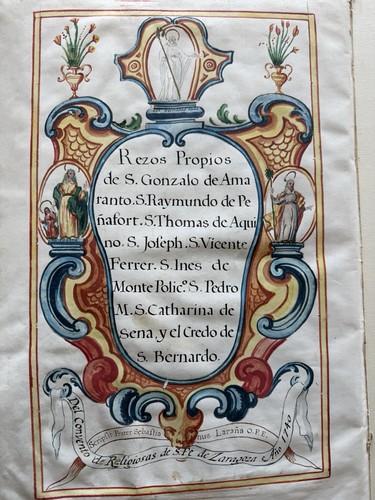 Rezos Propios
de S. Gonzalo de Ama
ranto. S. Raymundo de Pe
ñafort. S. Thomas de Aqui
no. S. Joseph. S. Vicente
Ferrer. S. Ines de
Monte Polic.º S. Pedro
M. S. Catharina de
Sena, y el Credo de
S. Bernardo.
Scripsit Frater Sebastia nus Laraña O.P.E.
Del Convento de Religiosas de S. Fe de Zaragoza Año 1740